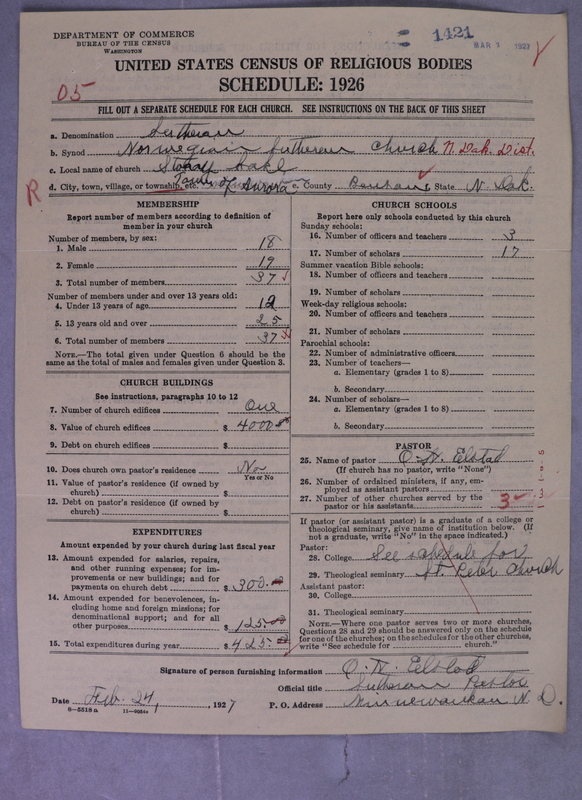 DEPARTMENT OF COMMERCE
BUREAU OF THE CENSUS
WASHINGTON
1421
MAR 1 1927
UNITED STATES CENSUS OF RELIGIOUS BODIES
SCHEDULE: 1926
05
FILL OUT A SEPARATE SCHEDULE FOR EACH CHURCH. SEE INSTRUCTIONS ON THE BACK OF THIS SHEET
a. Denomination Lutheran
b. Synod Norwegian Lutheran Church N. Dak. Dist.
c. Local name of church Lake
R
d. City, town, village, or township, etc. Town of Aurora e. County Benson State N. Dak.
MEMBERSHIP
Report number of members according to definition of member in your church
Number of members, by sex:
1. Male 18
2. Female 19
3. Total number of members 37
Number of members under and over 13 years old:
4. Under 13 years of age 12
5. 13 years old and over 25
6. Total number of members 37
NOTE.—The total given under Question 6 should be the same as the total of males and females given under Question 3.
CHURCH BUILDINGS
See instructions, paragraphs 10 to 12
7. Number of church edifices One
8. Value of church edifices $ 4000
9. Debt on church edifices $
10. Does church own pastor's residence No
Yes or No
11. Value of pastor's residence (if owned by church) $
12. Debt on pastor's residence (if owned by church) $
EXPENDITURES
Amount expended by your church during last fiscal year
13. Amount expended for salaries, repairs, and other running expenses; for improvements or new buildings; and for payments on church debt $ 300.00
14. Amount expended for benevolences, including home and foreign missions; for denominational support; and for all other purposes $ 125.00
15. Total expenditures during year $ 425.00
CHURCH SCHOOLS
Report here only schools conducted by this church
Sunday schools:
16. Number of officers and teachers 3
17. Number of scholars 17
Summer vacation Bible schools:
18. Number of officers and teachers
19. Number of scholars
Week-day religious schools:
20. Number of officers and teachers
21. Number of scholars
Parochial schools:
22. Number of administrative officers
23. Number of teachers—
a. Elementary (grades 1 to 8)
b. Secondary
24. Number of scholars—
a. Elementary (grades 1 to 8)
b. Secondary
PASTOR
25. Name of pastor O. N. Elstad
(If church has no pastor, write "None")
26. Number of ordained ministers, if any, employed as assistant pastors
27. Number of other churches served by the pastor or his assistants 3
If pastor (or assistant pastor) is a graduate of a college or theological seminary, give name of institution below. (If not a graduate, write "No" in the space indicated.)
Pastor:
28. College See schedule for
29. Theological seminary St. Peter Church
Assistant pastor:
30. College
31. Theological seminary
NOTE.—Where one pastor serves two or more churches, Questions 28 and 29 should be answered only on the schedule for one of the churches; on the schedules for the other churches, write "See schedule for church."
Signature of person furnishing information O. N. Elstad
Official title Lutheran Pastor
Date Feb. 24, 1927 P. O. Address Minnewaukan N. D.
8—5518a 11—9054a